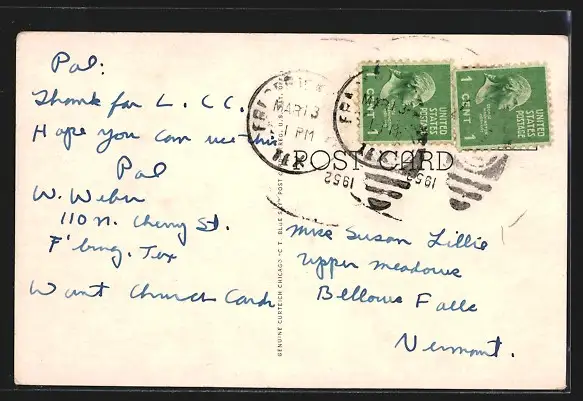 Pal:
Thanks for L. C. C.
Hope you can use this
Pal
W. Weber
110 N. Cherry St.
F'burg. Tex
Want Church Cards
POST CARD
MAR 13
1 PM
TEX
1952
MAR 13
TEX
1952
UNITED
STATES
POSTAGE
1 CENT 1
UNITED
STATES
POSTAGE
1 CENT 1
GENUINE CURTEICH CHICAGO "C. T. BLUE SKY" POST
Miss Susan Lillie
Upper meadows
Bellows Falls
Vermont.